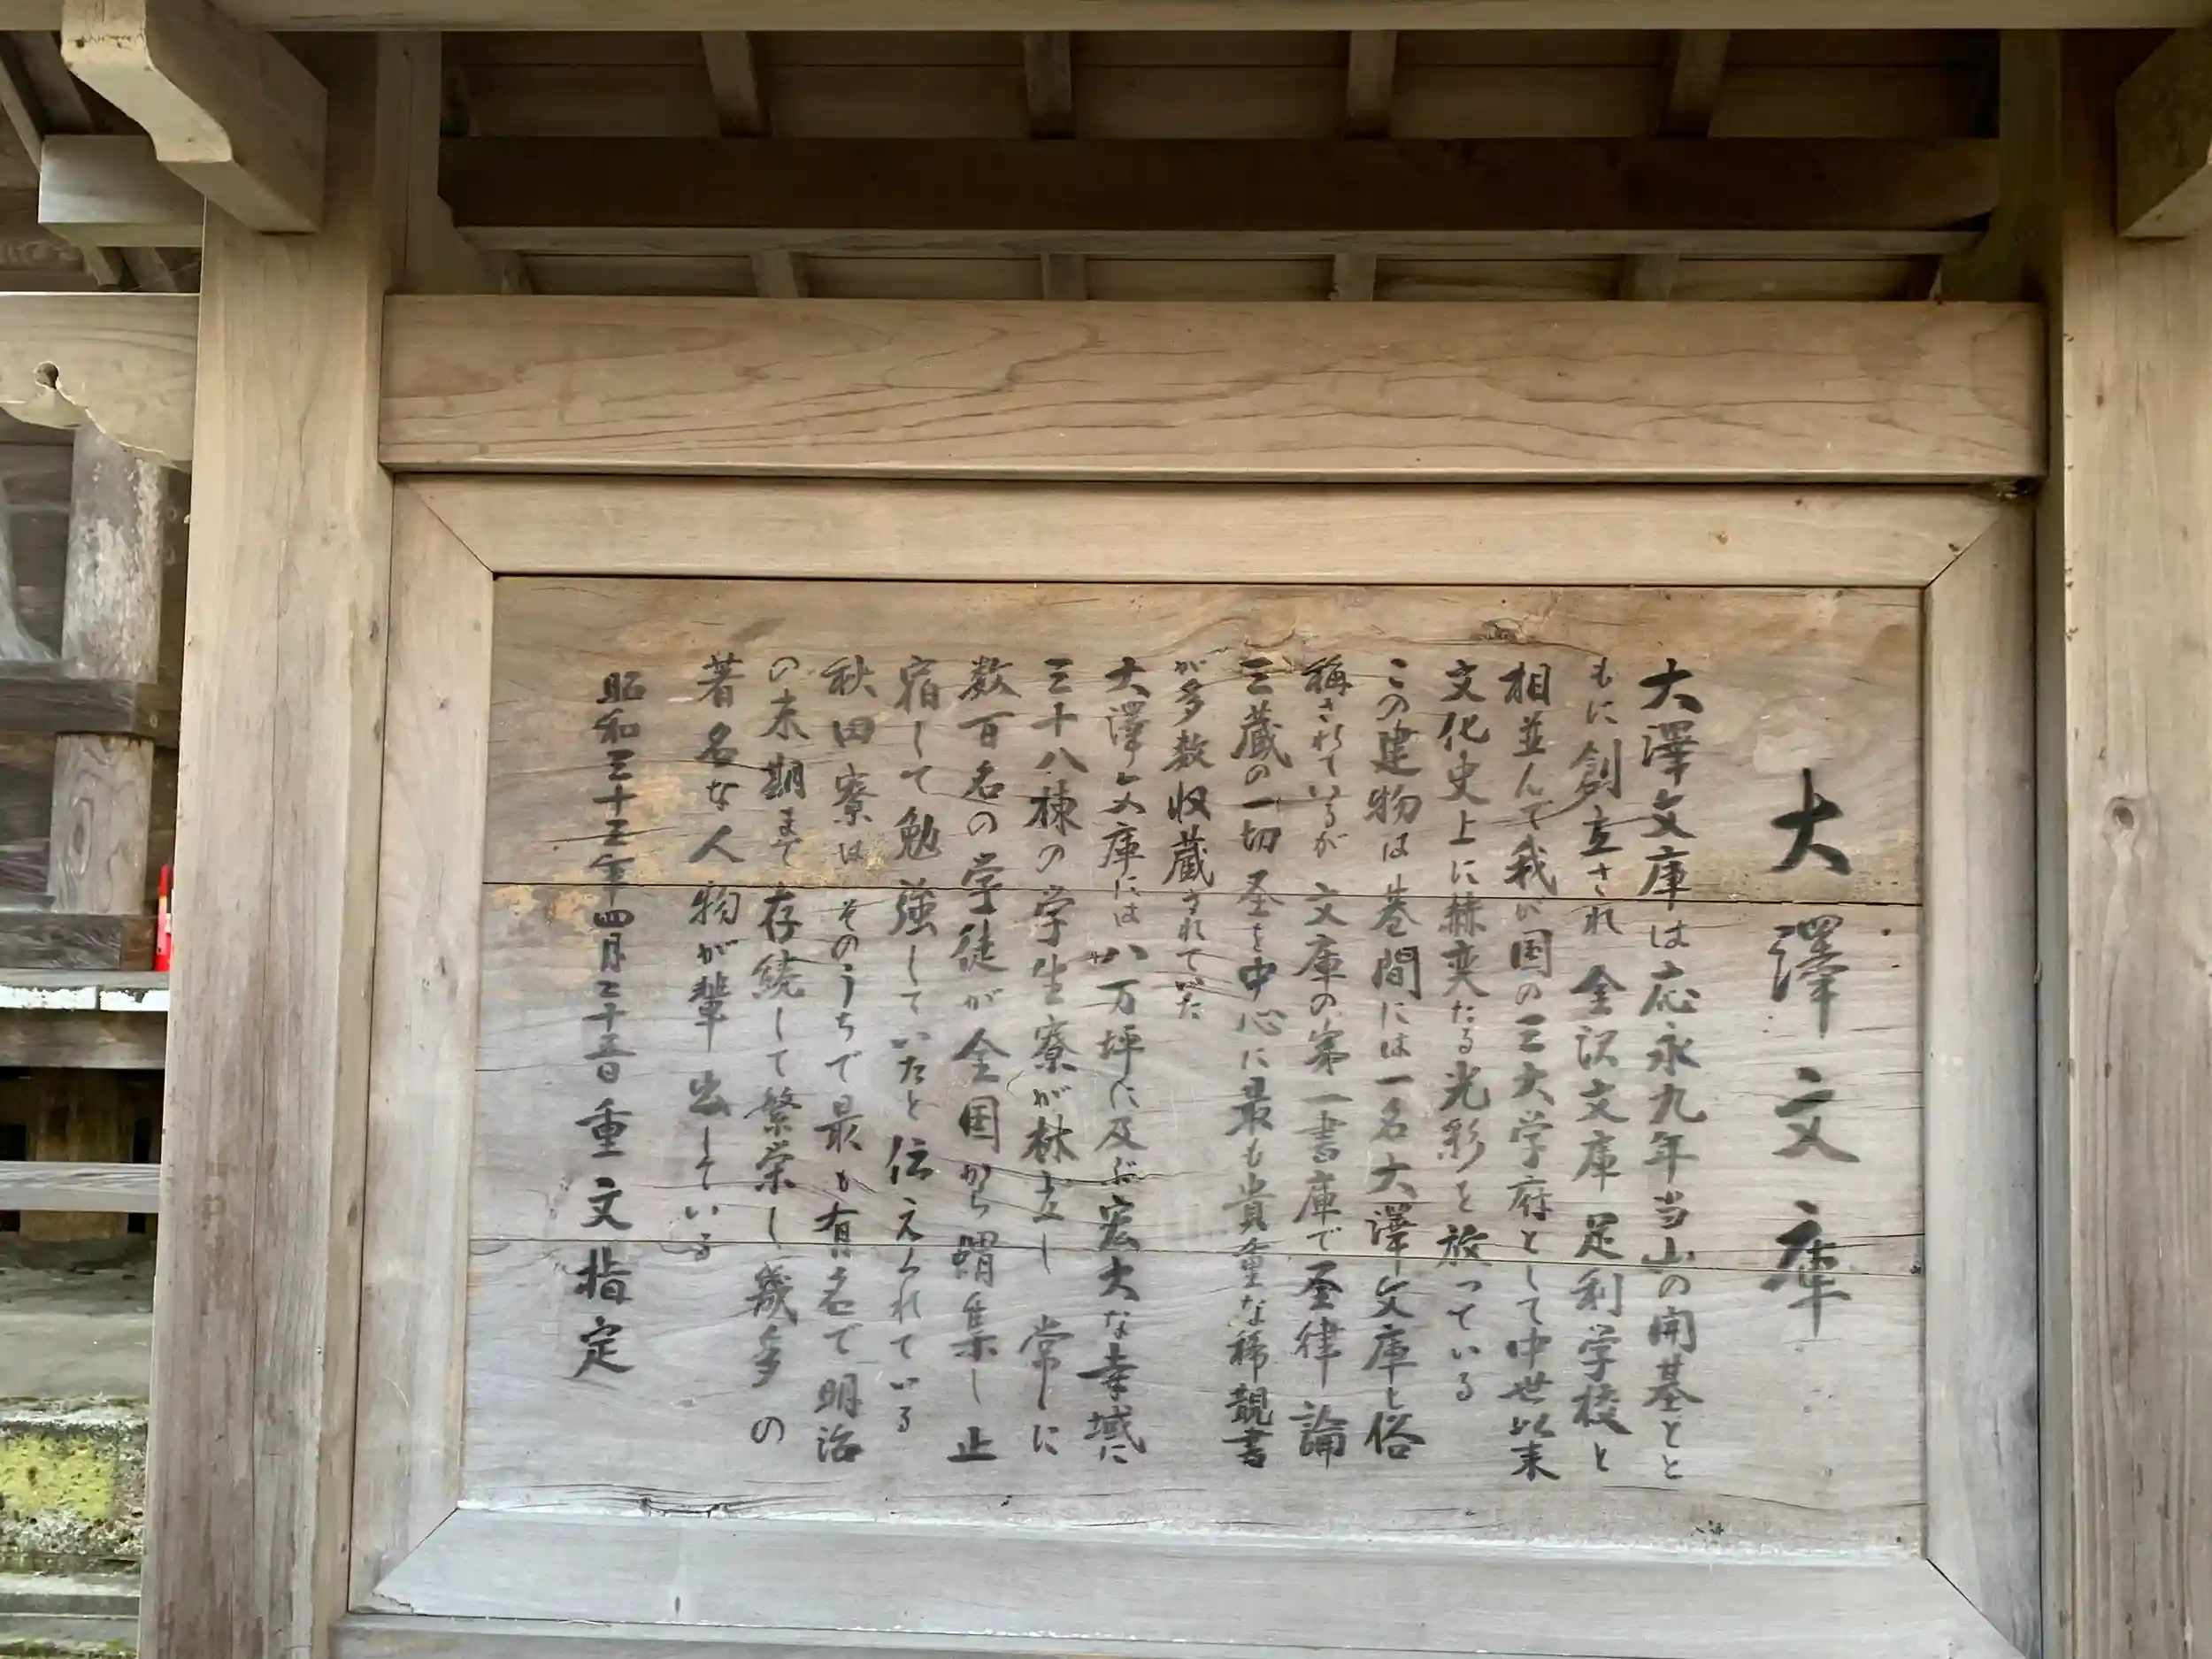 大澤文庫
大澤文庫は応永九年当山の開基とと
もに創立され 金沢文庫 足利学校と
相並んで我が国の三大学府として中世以来
文化史上に赫奕たる光彩を放っている
この建物は巷間には一名大澤文庫と俗
稱されているが 文庫の第一書庫で圣律論
三蔵の一切圣を中心に最も貴重な稀覯書
が多数収蔵されていた
大澤文庫には 八万坪に及ぶ宏大な寺域に
三十八棟の学生寮が林立し 常に
数百名の学徒が全国から蝟集し止
宿して勉強していたと伝えられている
秋田寮は そのうちで最も有名で明治
の末期まで存続して繁栄し幾多の
著名な人物が輩出している
昭和三十三年四月二十五日重文指定